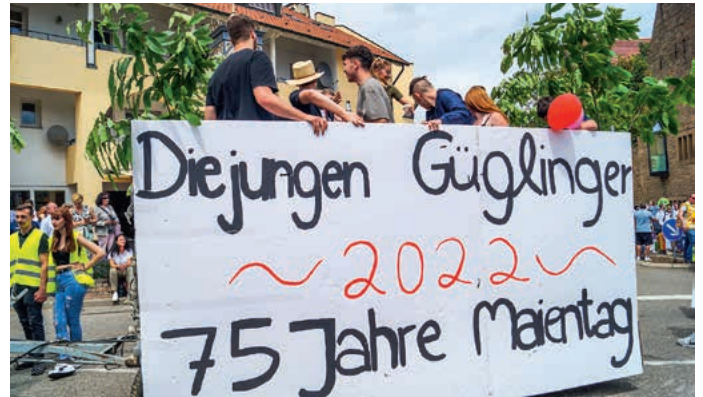 Die jungen Güglinger
~2022~
75 Jahre Maientag